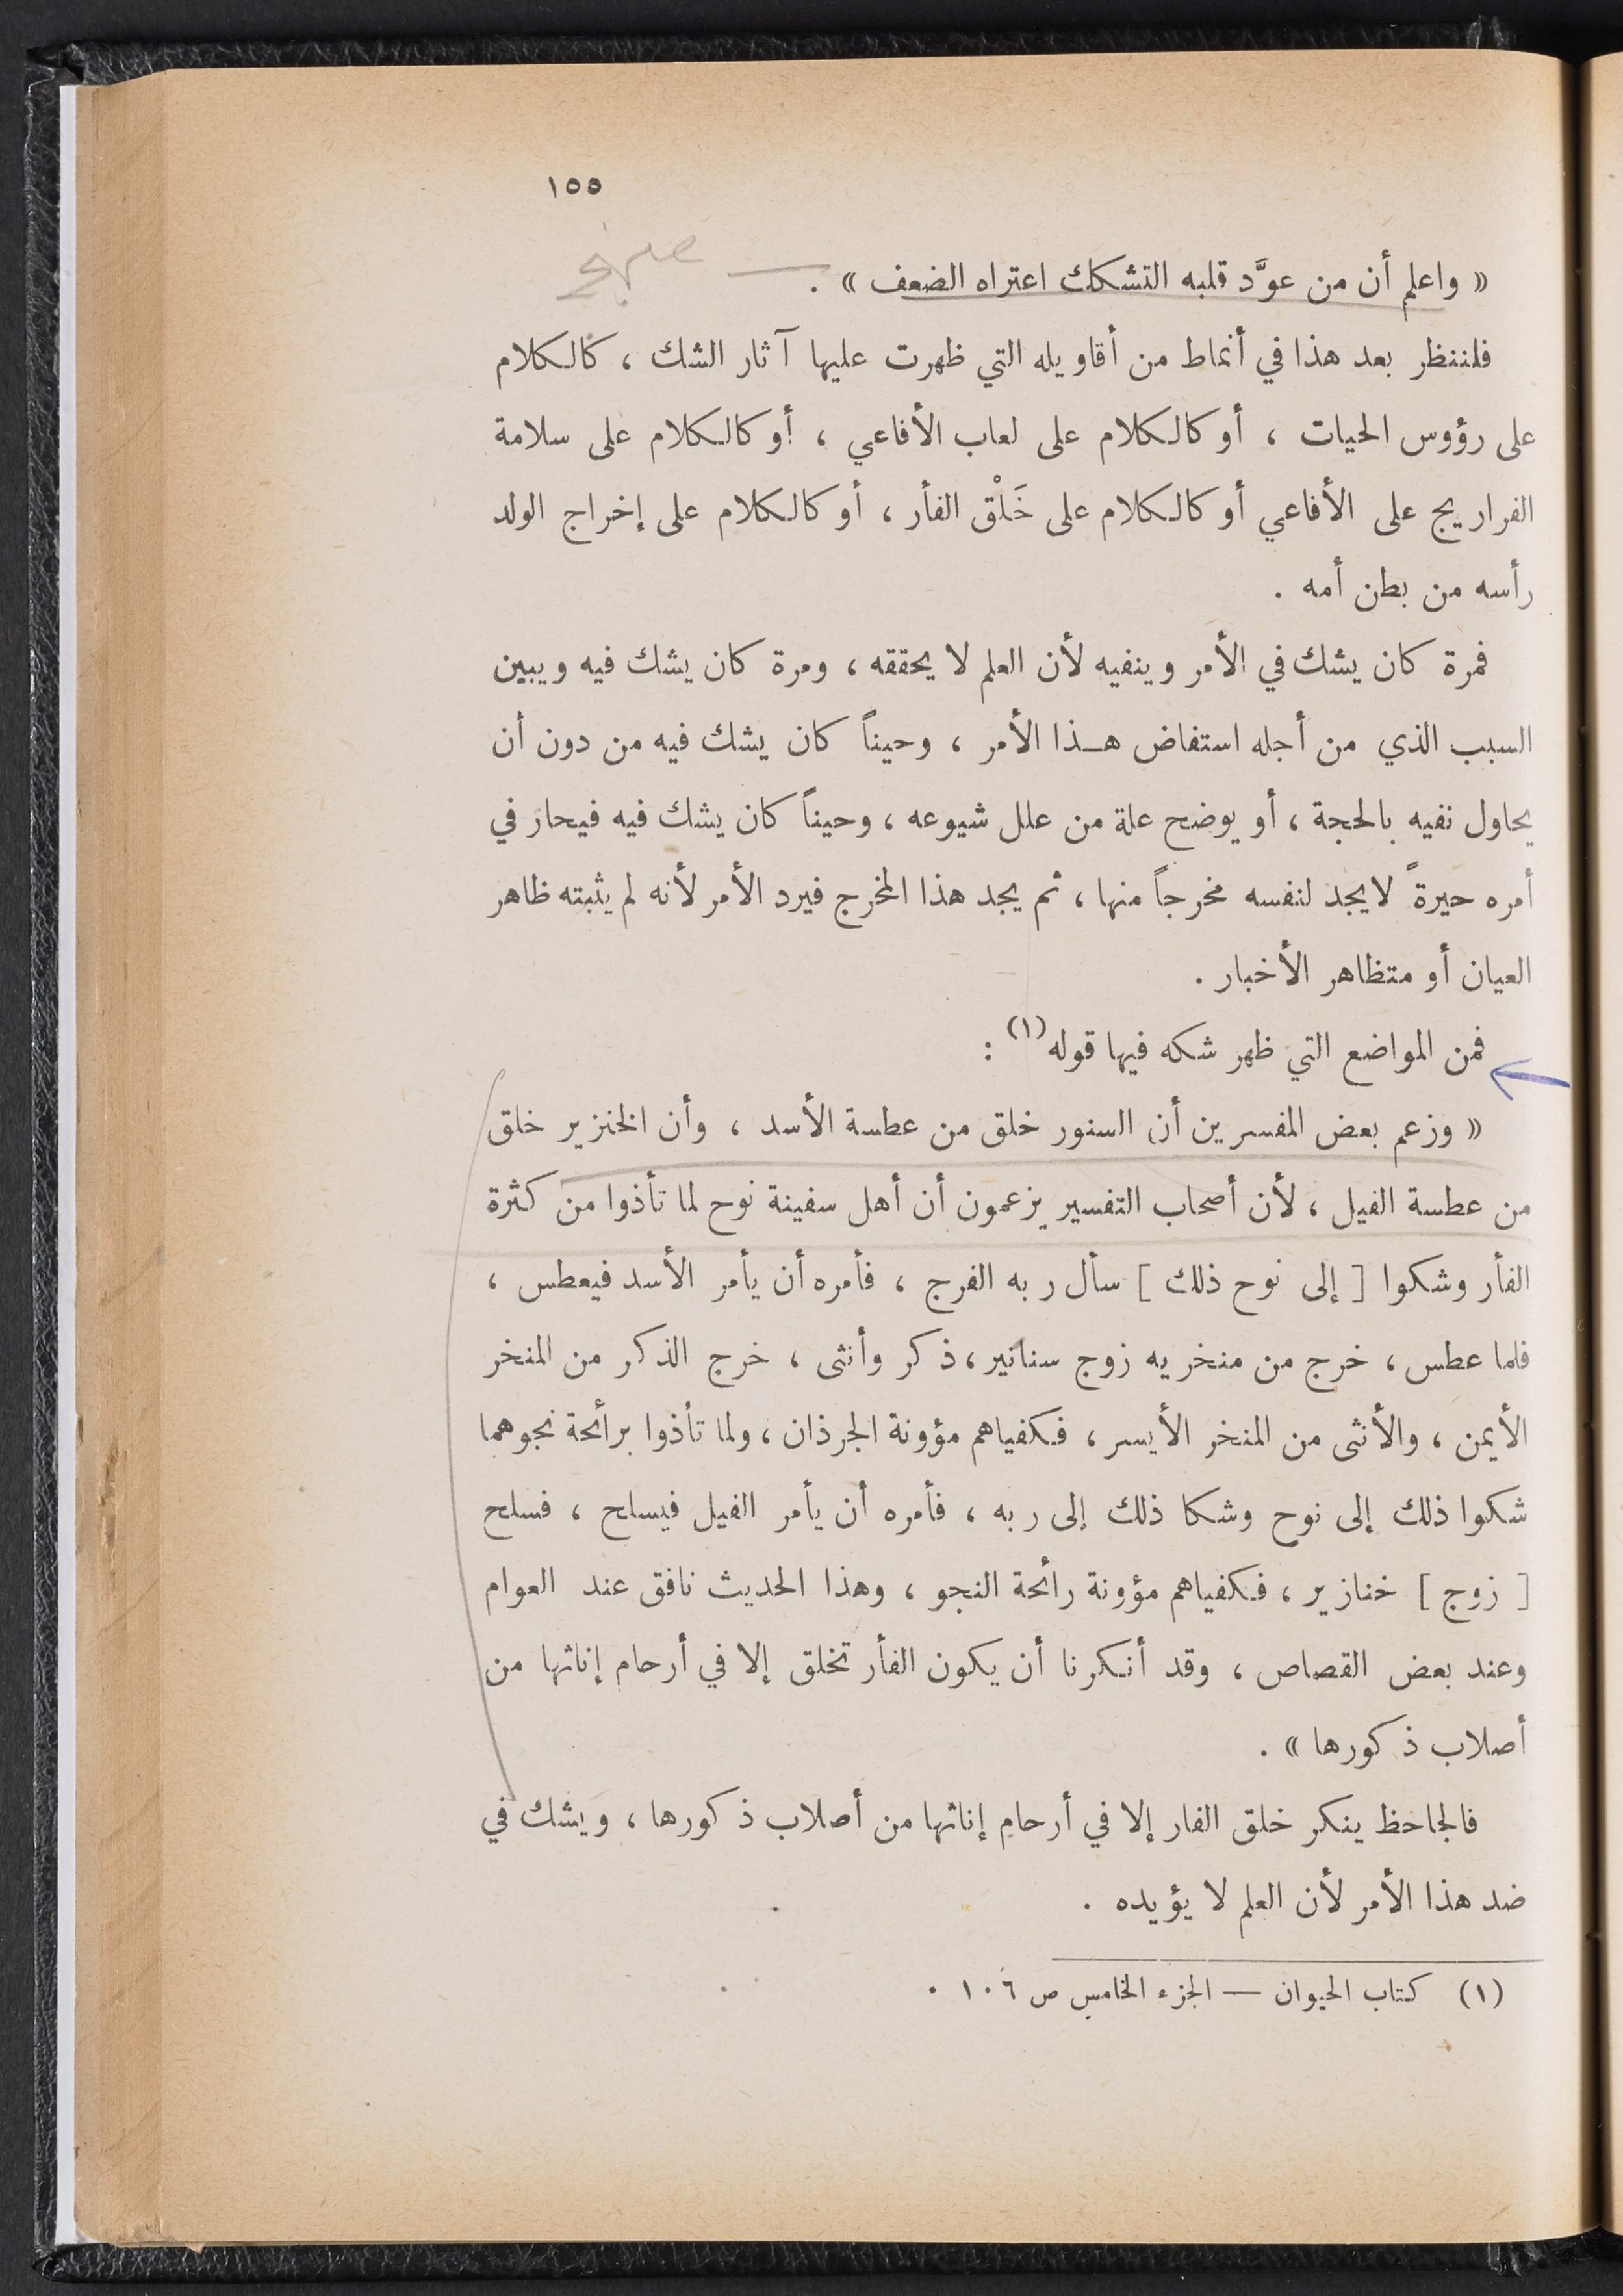 ١٥٥
« واعلم أن من عوَّد قلبه التشكك اعتراه الضعف » .
فلننظر بعد هذا في أنماط من أقاويله التي ظهرت عليها آثار الشك ، كالكلام
على رؤوس الحيات ، أو كالكلام على لعاب الأفاعي ، أو كالكلام على سلامة
الفراريج على الأفاعي أو كالكلام على خَلْق الفأر ، أو كالكلام على إخراج الولد
رأسه من بطن أمه .
فمرة كان يشك في الأمر وينفيه لأن العلم لا يحققه ، ومرة كان يشك فيه ويبين
السبب الذي من أجله استفاض هـذا الأمر ، وحيناً كان يشك فيه من دون أن
يحاول نفيه بالحجة ، أو يوضح علة من علل شيوعه ، وحيناً كان يشك فيه فيحار في
أمره حيرةً لا يجد لنفسه مخرجاً منها ، ثم يجد هذا المخرج فيرد الأمر لأنه لم يثبته ظاهر
العيان أو متظاهر الأخبار .
فمن المواضع التي ظهر شكه فيها قوله (١) :
« وزعم بعض المفسرين أن السنور خلق من عطسة الأسد ، وأن الخنزير خلق
من عطسة الفيل ، لأن أصحاب التفسير يزعمون أن أهل سفينة نوح لما تأذوا من كثرة
الفأر وشكوا [ إلى نوح ذلك ] سأل ربه الفرج ، فأمره أن يأمر الأسد فيعطس ،
فلما عطس ، خرج من منخريه زوج سنانير ، ذكر وأنثى ، خرج الذكر من المنخر
الأيمن ، والأنثى من المنخر الأيسر ، فكفياهم مؤونة الجرذان ، ولما تأذوا برائحة نجوهما
شكوا ذلك إلى نوح وشكا ذلك إلى ربه ، فأمره أن يأمر الفيل فيسلح ، فسلح
[ زوج ] خنازير ، فكفياهم مؤونة رائحة النجو ، وهذا الحديث نافق عند العوام
وعند بعض القصاص ، وقد أنكرنا أن يكون الفأر تخلق إلا في أرحام إناثها من
أصلاب ذكورها » .
فالجاحظ ينكر خلق الفار إلا في أرحام إناثها من أصلاب ذكورها ، ويشك في
ضد هذا الأمر لأن العلم لا يؤيده .
(١) كتاب الحيوان — الجزء الخامس ص ١٠٦ .